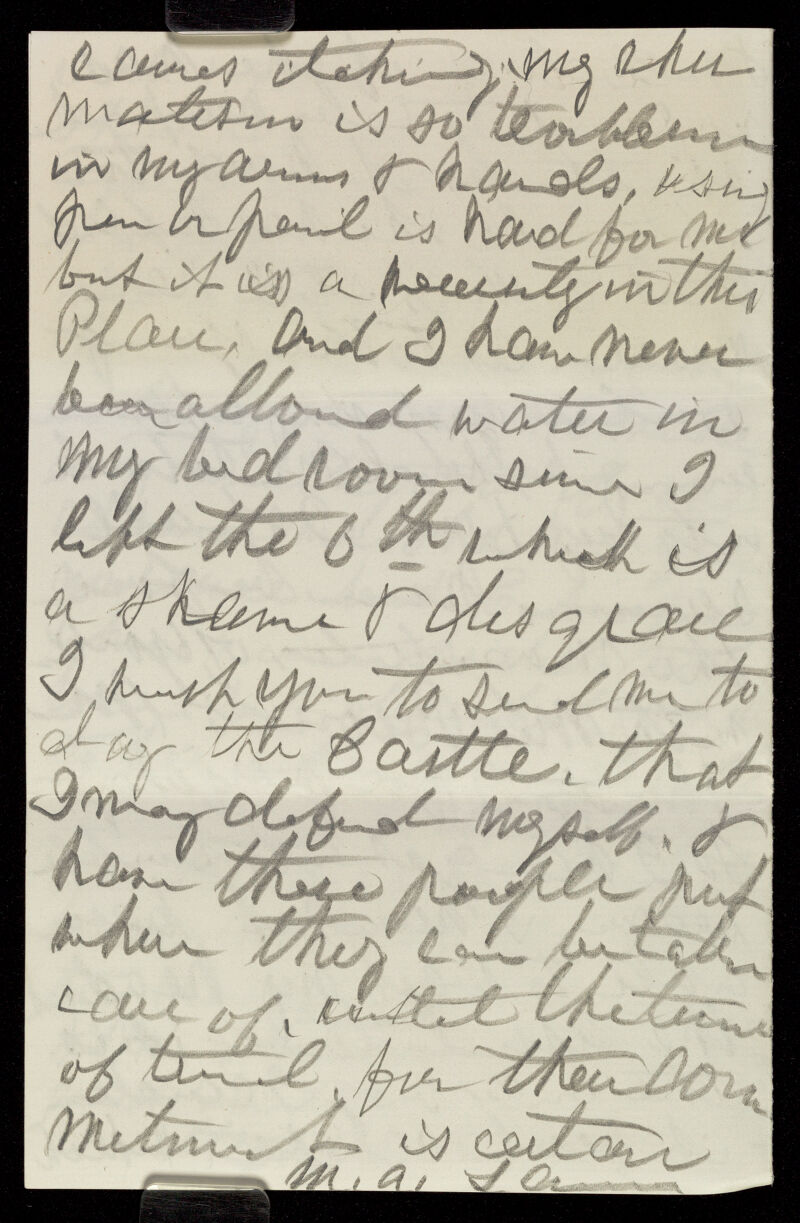 causes itching, my rheu
matism is so troublesom
in my arms & hands, using
pen or pencil is hard for me
but it is a necessity in this
Place. And I have never
been allowd water in
my bedroom since I
left the 6th which is
a shame & disgrace
I wish you to send me to
day the Castle, that
I may defend myself. &
have these people put
where they can be taken
care of, until the time
of trial, for their com
mitment is certain
M. A.